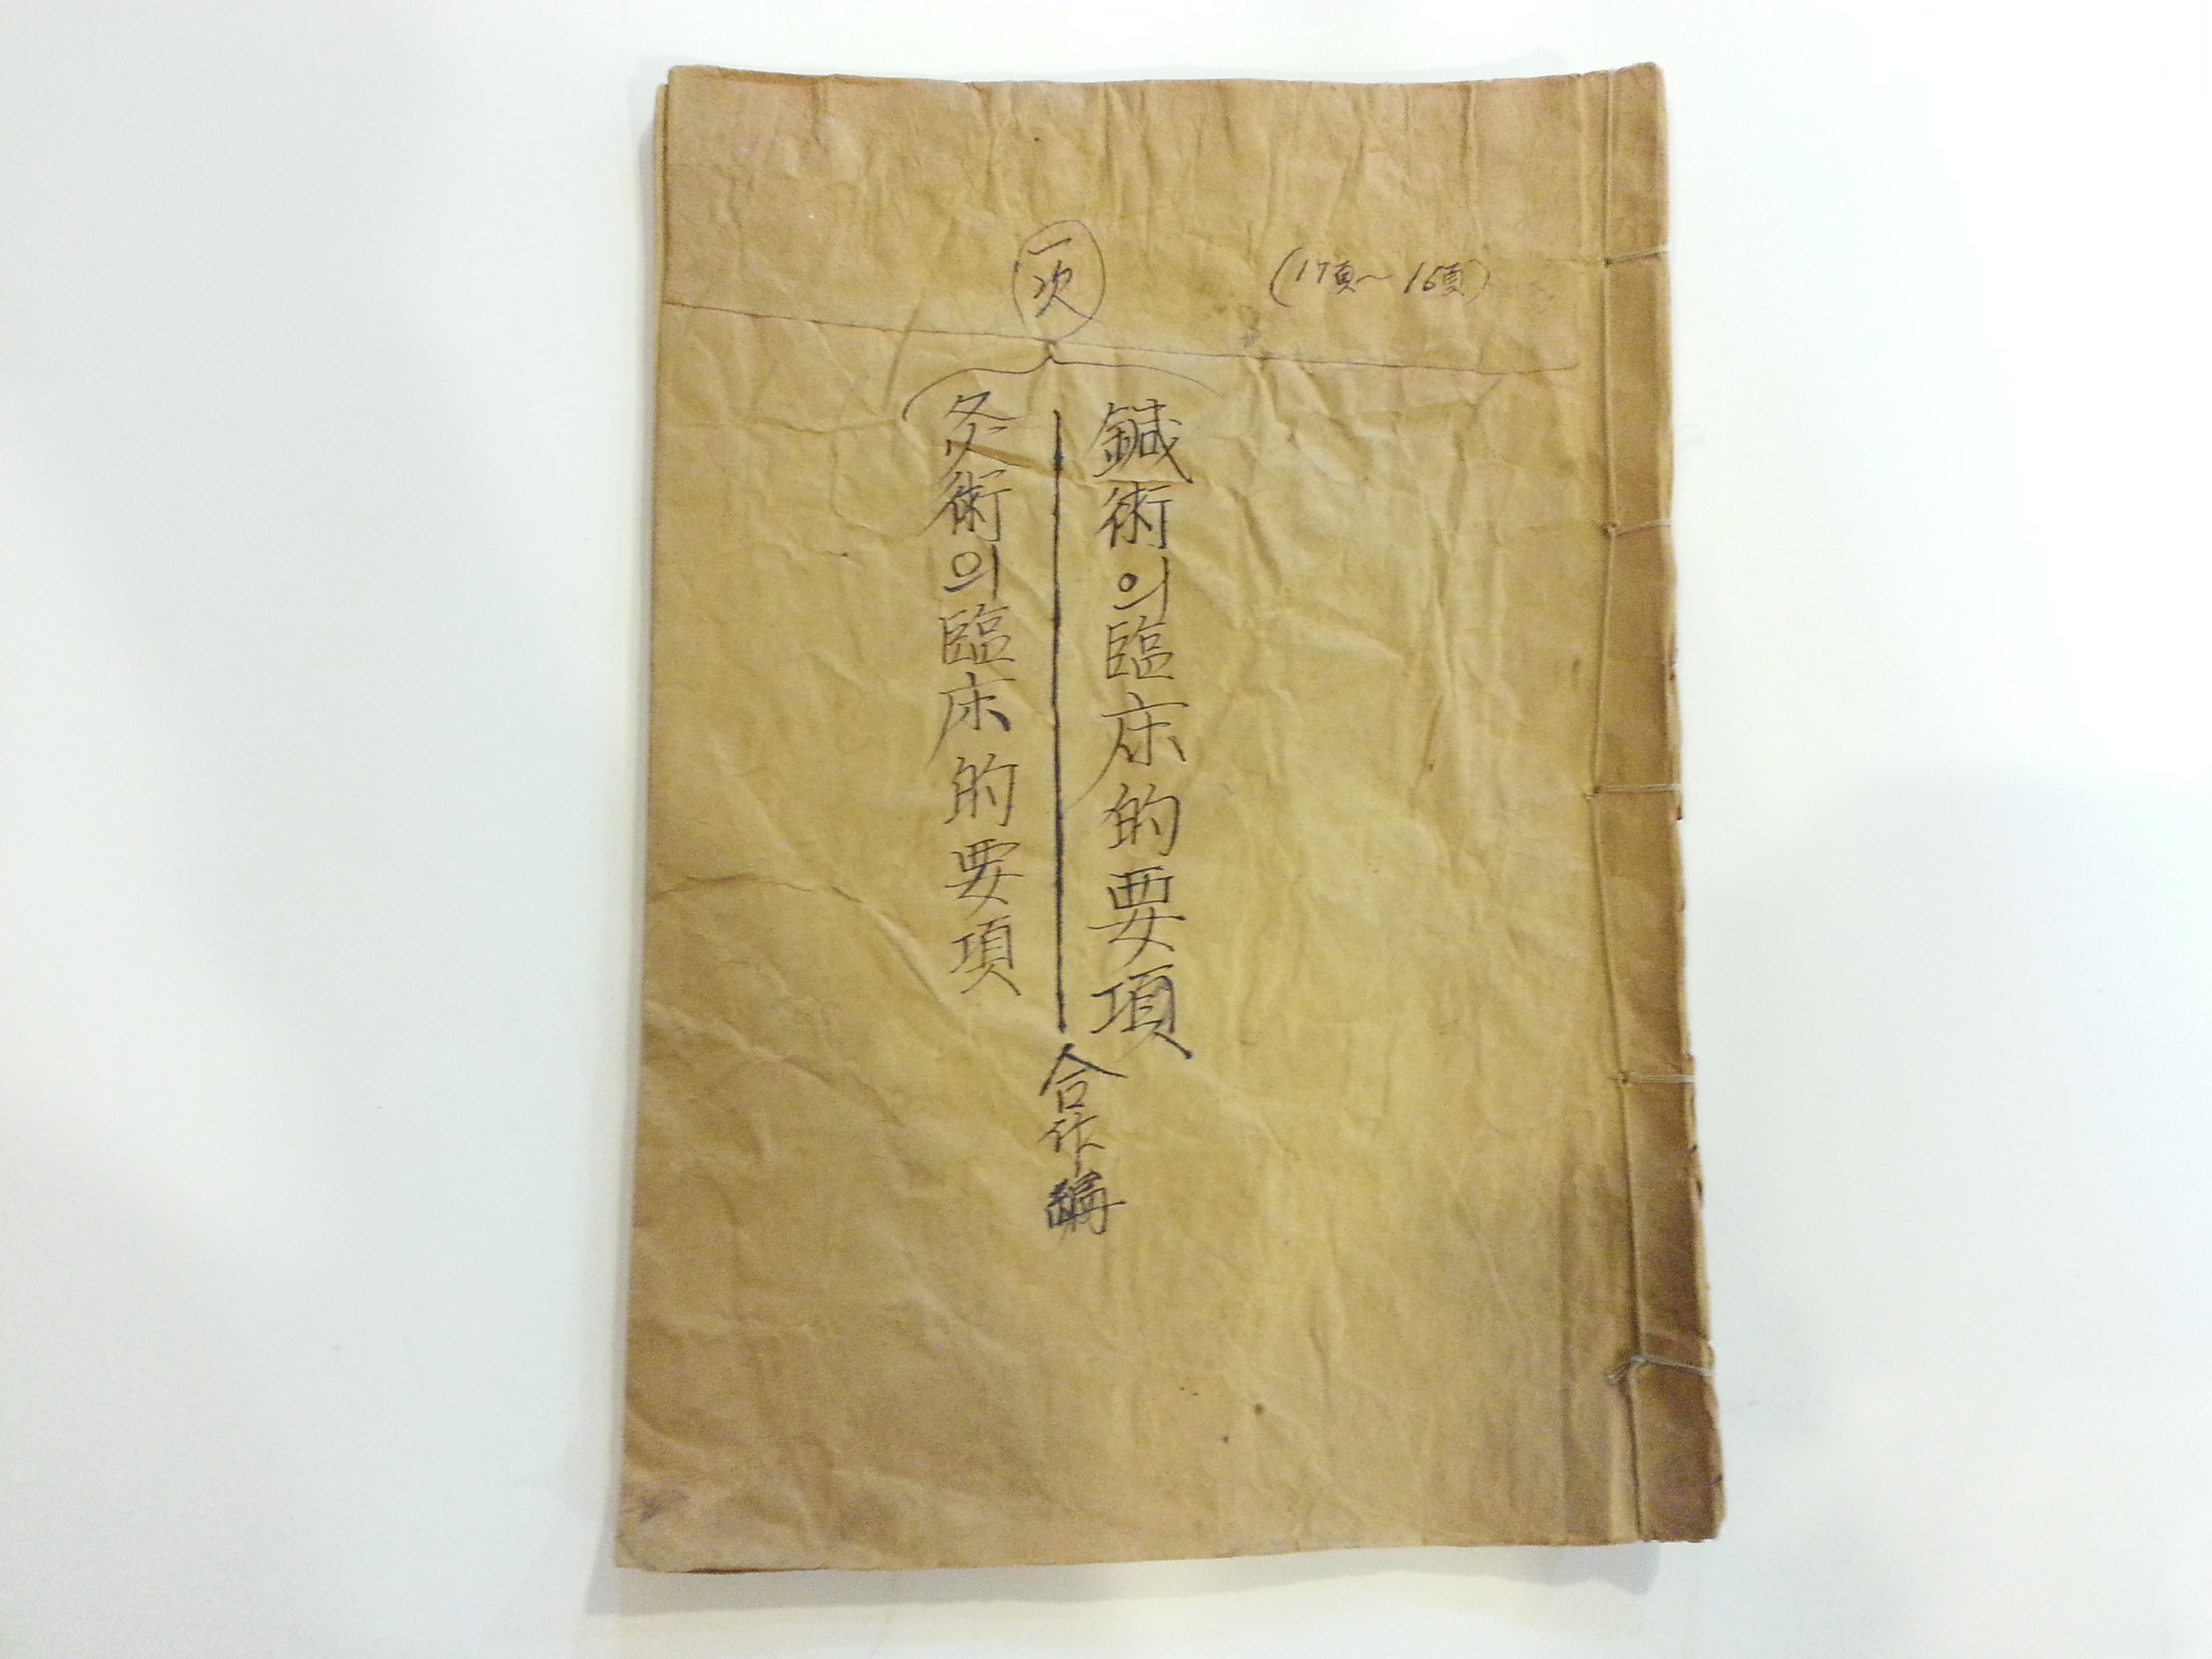 一次
(17頁~16頁)
鍼術의臨床的要項
灸術의臨床的要項
合作編